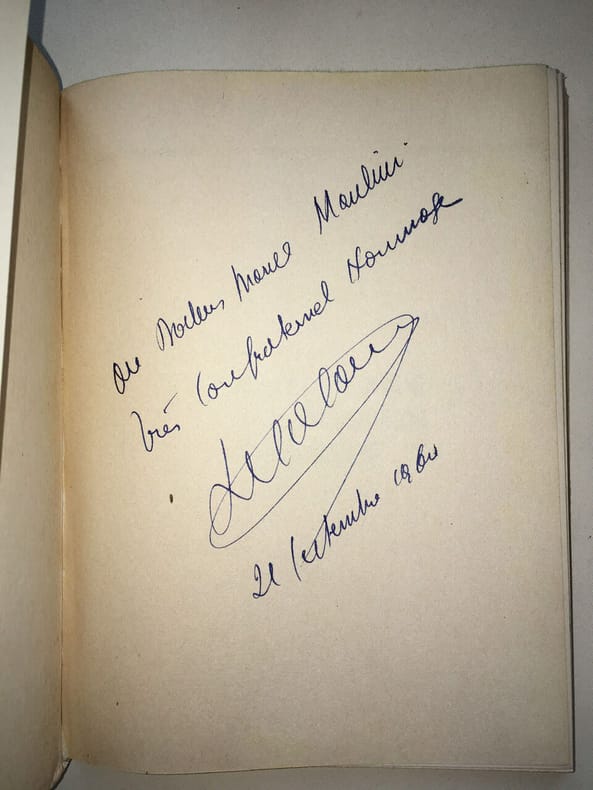 au Docteur Marcel Moulini
très Confraternel Hommage
21 Septembre 1964